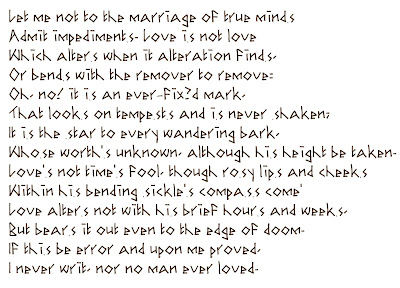 Let me not to the marriage of true minds
Admit impediments. Love is not love
Which alters when it alteration finds,
Or bends with the remover to remove:
Oh, no! it is an ever-fix?d mark,
That looks on tempests and is never shaken;
It is the star to every wandering bark,
Whose worth's unknown, although his height be taken.
Love's not time's fool, though rosy lips and cheeks
Within his bending sickle's compass come'
Love alters not with his brief hours and weeks,
But bears it out even to the edge of doom.
If this be error and upon me proved,
I never writ, nor no man ever loved.